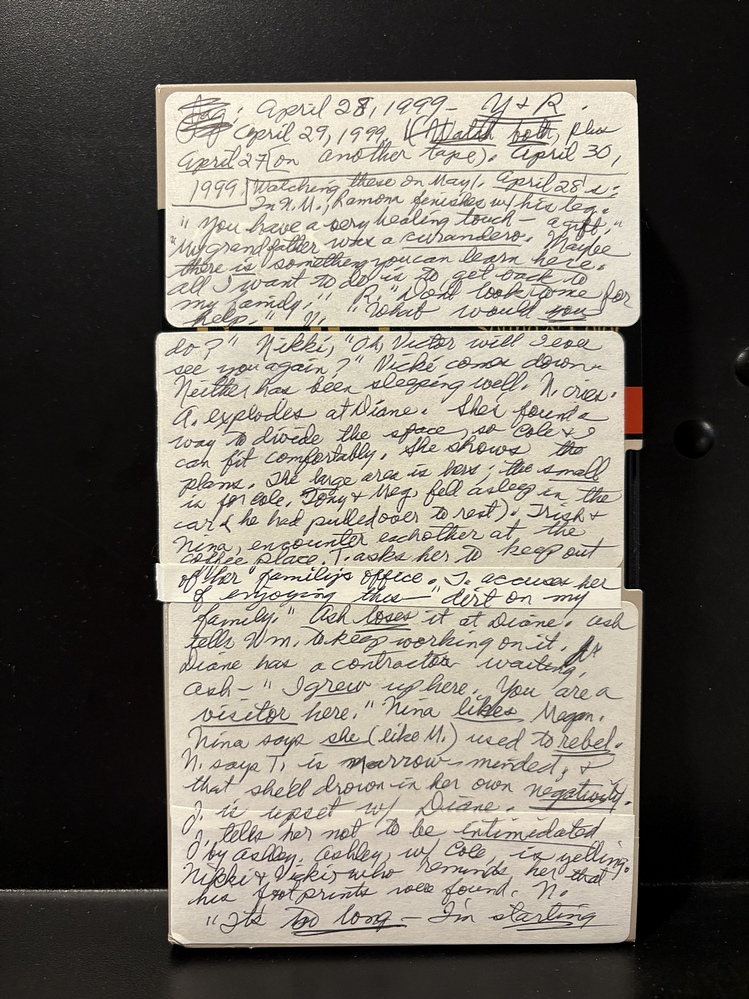 April 28, 1999 - Y + R.
April 29, 1999 (Watch both, plus
April 27 [on another tape). April 30,
1999] Watching these on May 1. April 28's:
In N.M., Ramon finishes w/ his leg.
"You have a very healing touch - a gift."
"My grandfather was a curandero. Maybe
there is something you can learn here.
all I want to do is to get back to
my family." R. "Don't look to me for
help." V. "What would you
do?" Nikki, "Oh Victor will I ever
see you again?" Vicki comes down.
Neither has been sleeping well. N. cries.
A. explodes at Diane. She found a
way to divide the space, so Cole & I
can fit comfortably. She shows the
plans. The large area is hers, the small
is for Cole. Tony & Meg fell asleep in the
car & he had pulled over to rest). Trish +
Nina, encounter eachother at the
coffee place. T. asks her to keep out
of "her" family's office. T. accuses her
of enjoying this - "dirt on my
family." Ash loses it at Diane. Ash
tells Wm. to keep working on it.
Diane has a contractor waiting,
Ash - "I grew up here. You are a
visitor here." Nina likes Megan.
Nina says she (like M.) used to rebel.
N. says T. is narrow-minded, &
that she'll drown in her own negativity.
J. is upset w/ Diane.
J. tells her not to be intimidated
by Ashley. Ashley, w/ Cole, is yelling.
Nikki & Vicki who reminds her that
his footprints were found. N.
"It's too long - I'm starting